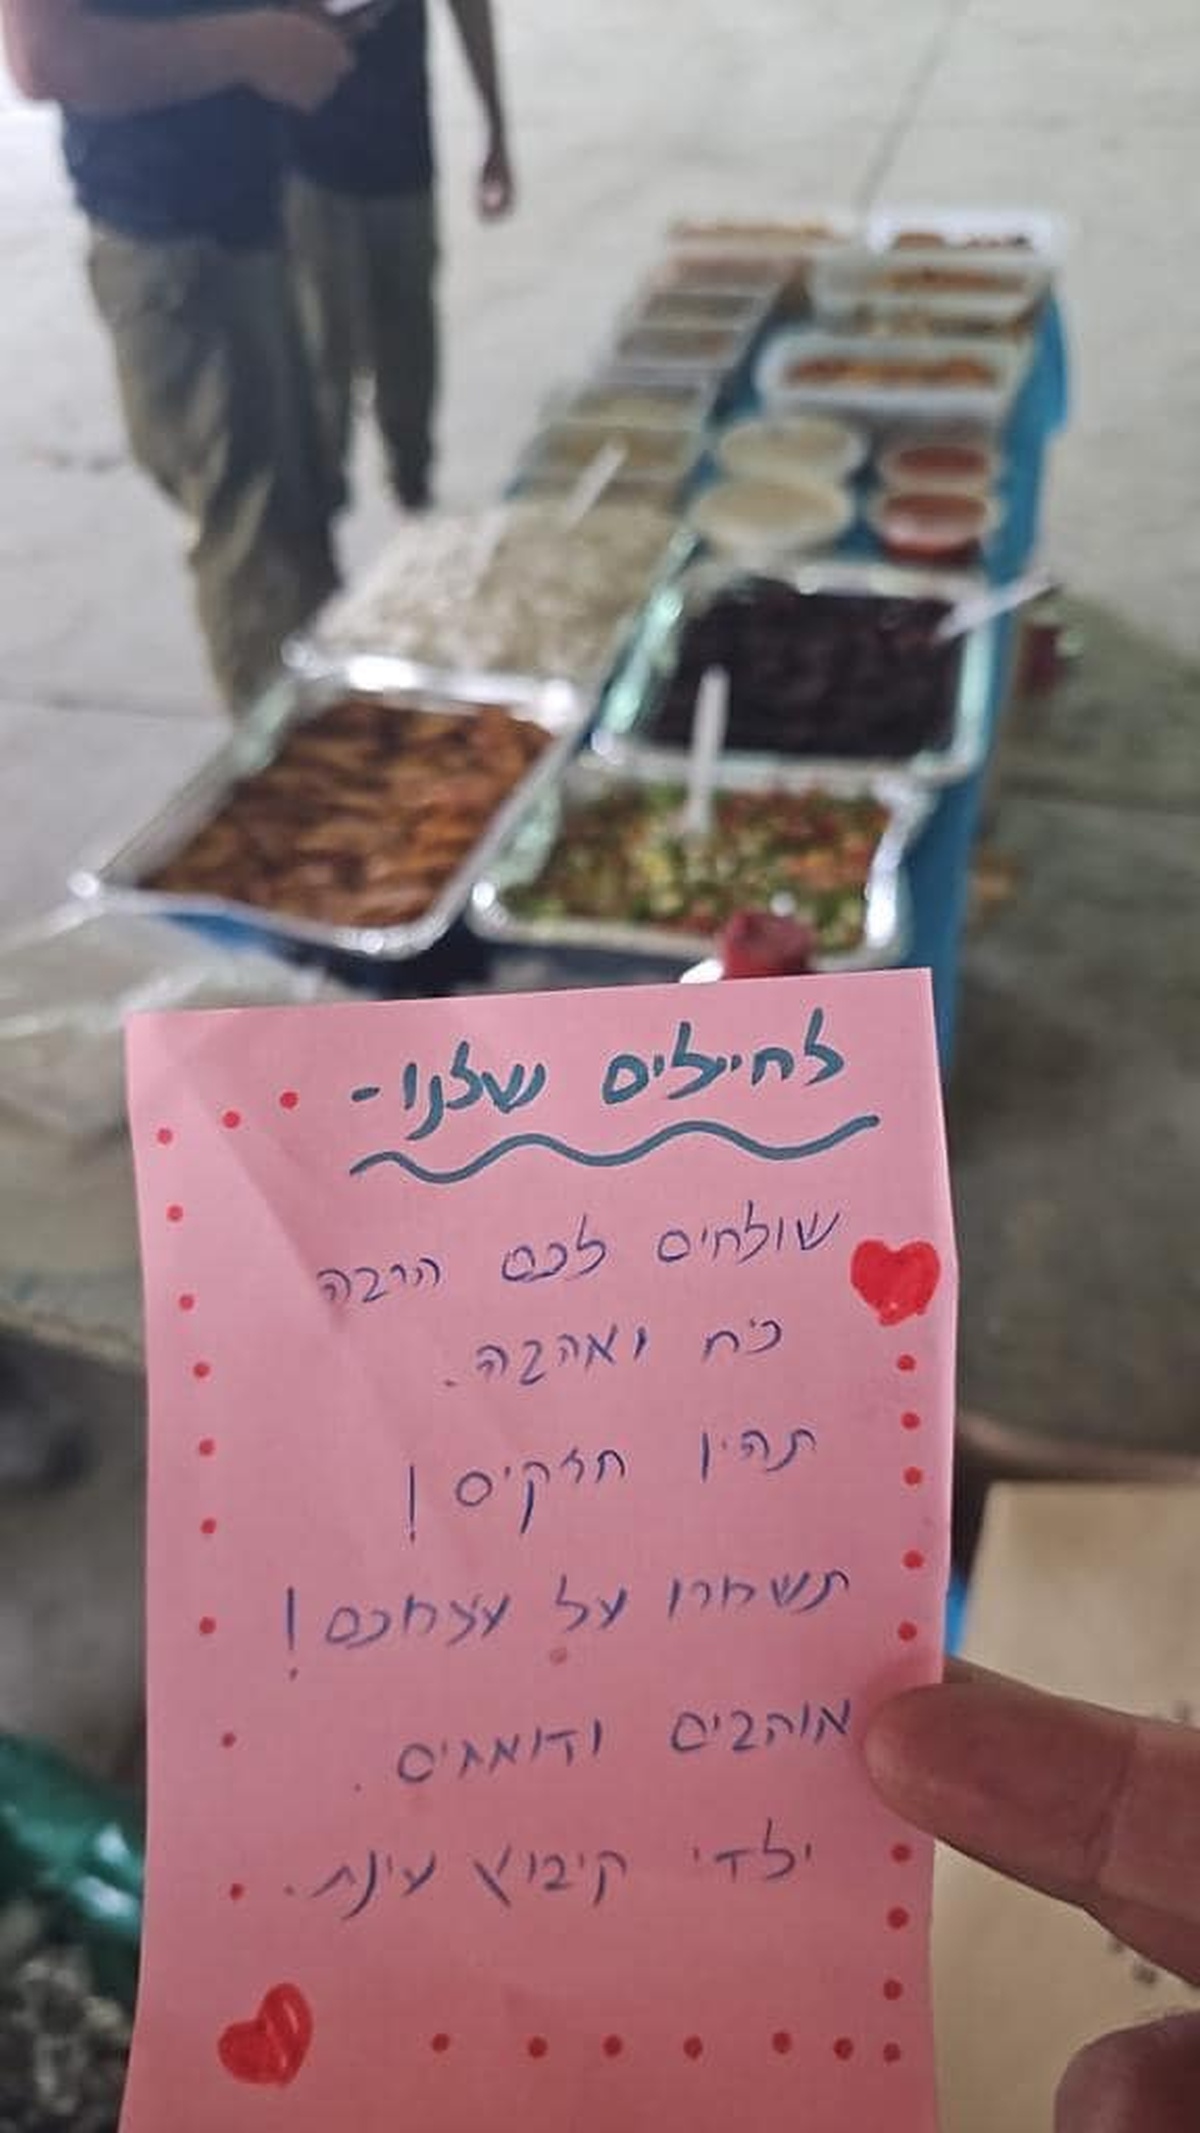 לחיילים שלנו -
שולחים לכם הרבה
כח ואהבה.
תהיו חזקים!
תשמרו על עצמכם!
אוהבים ודואגים.
ילדי קיבוץ עינת.